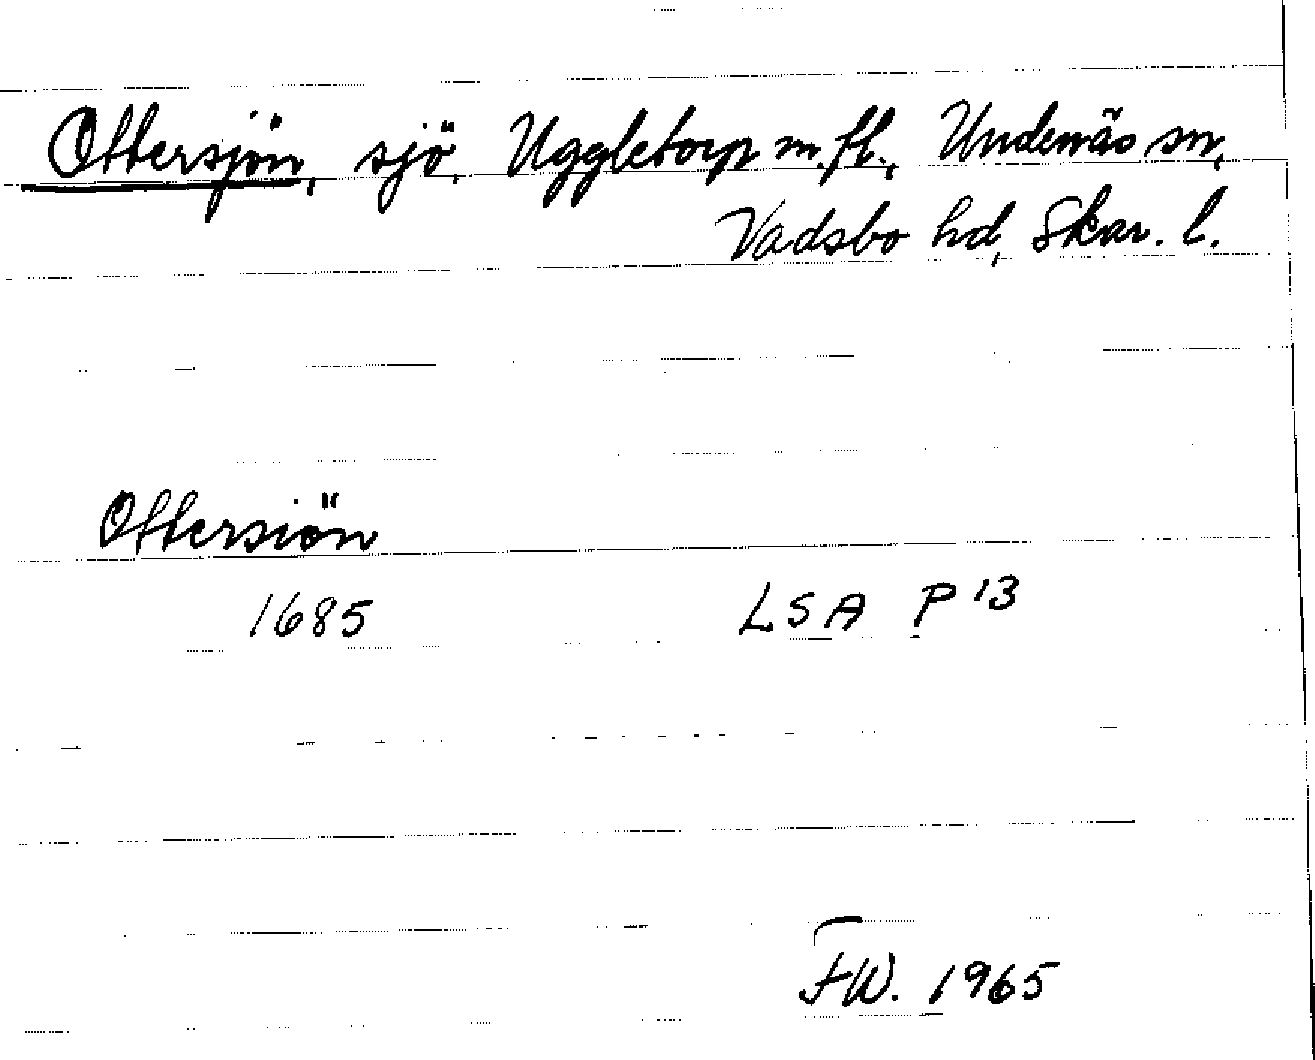 Ottersjön, sjö, Uggletorp m.fl., Undenäs sn,
Vadsbo hd, Skar. l.
Ottersiön
1685 LSA P 13
FW. 1965